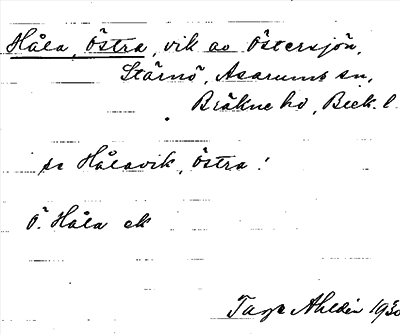 Håla, Östra, vik av Östersjön,
Stärnö, Asarums sn,
Bräkne hd, Blek. l.
se Hålavik, Östra!
Ö. Håla ek
Tage Ahldén 1930